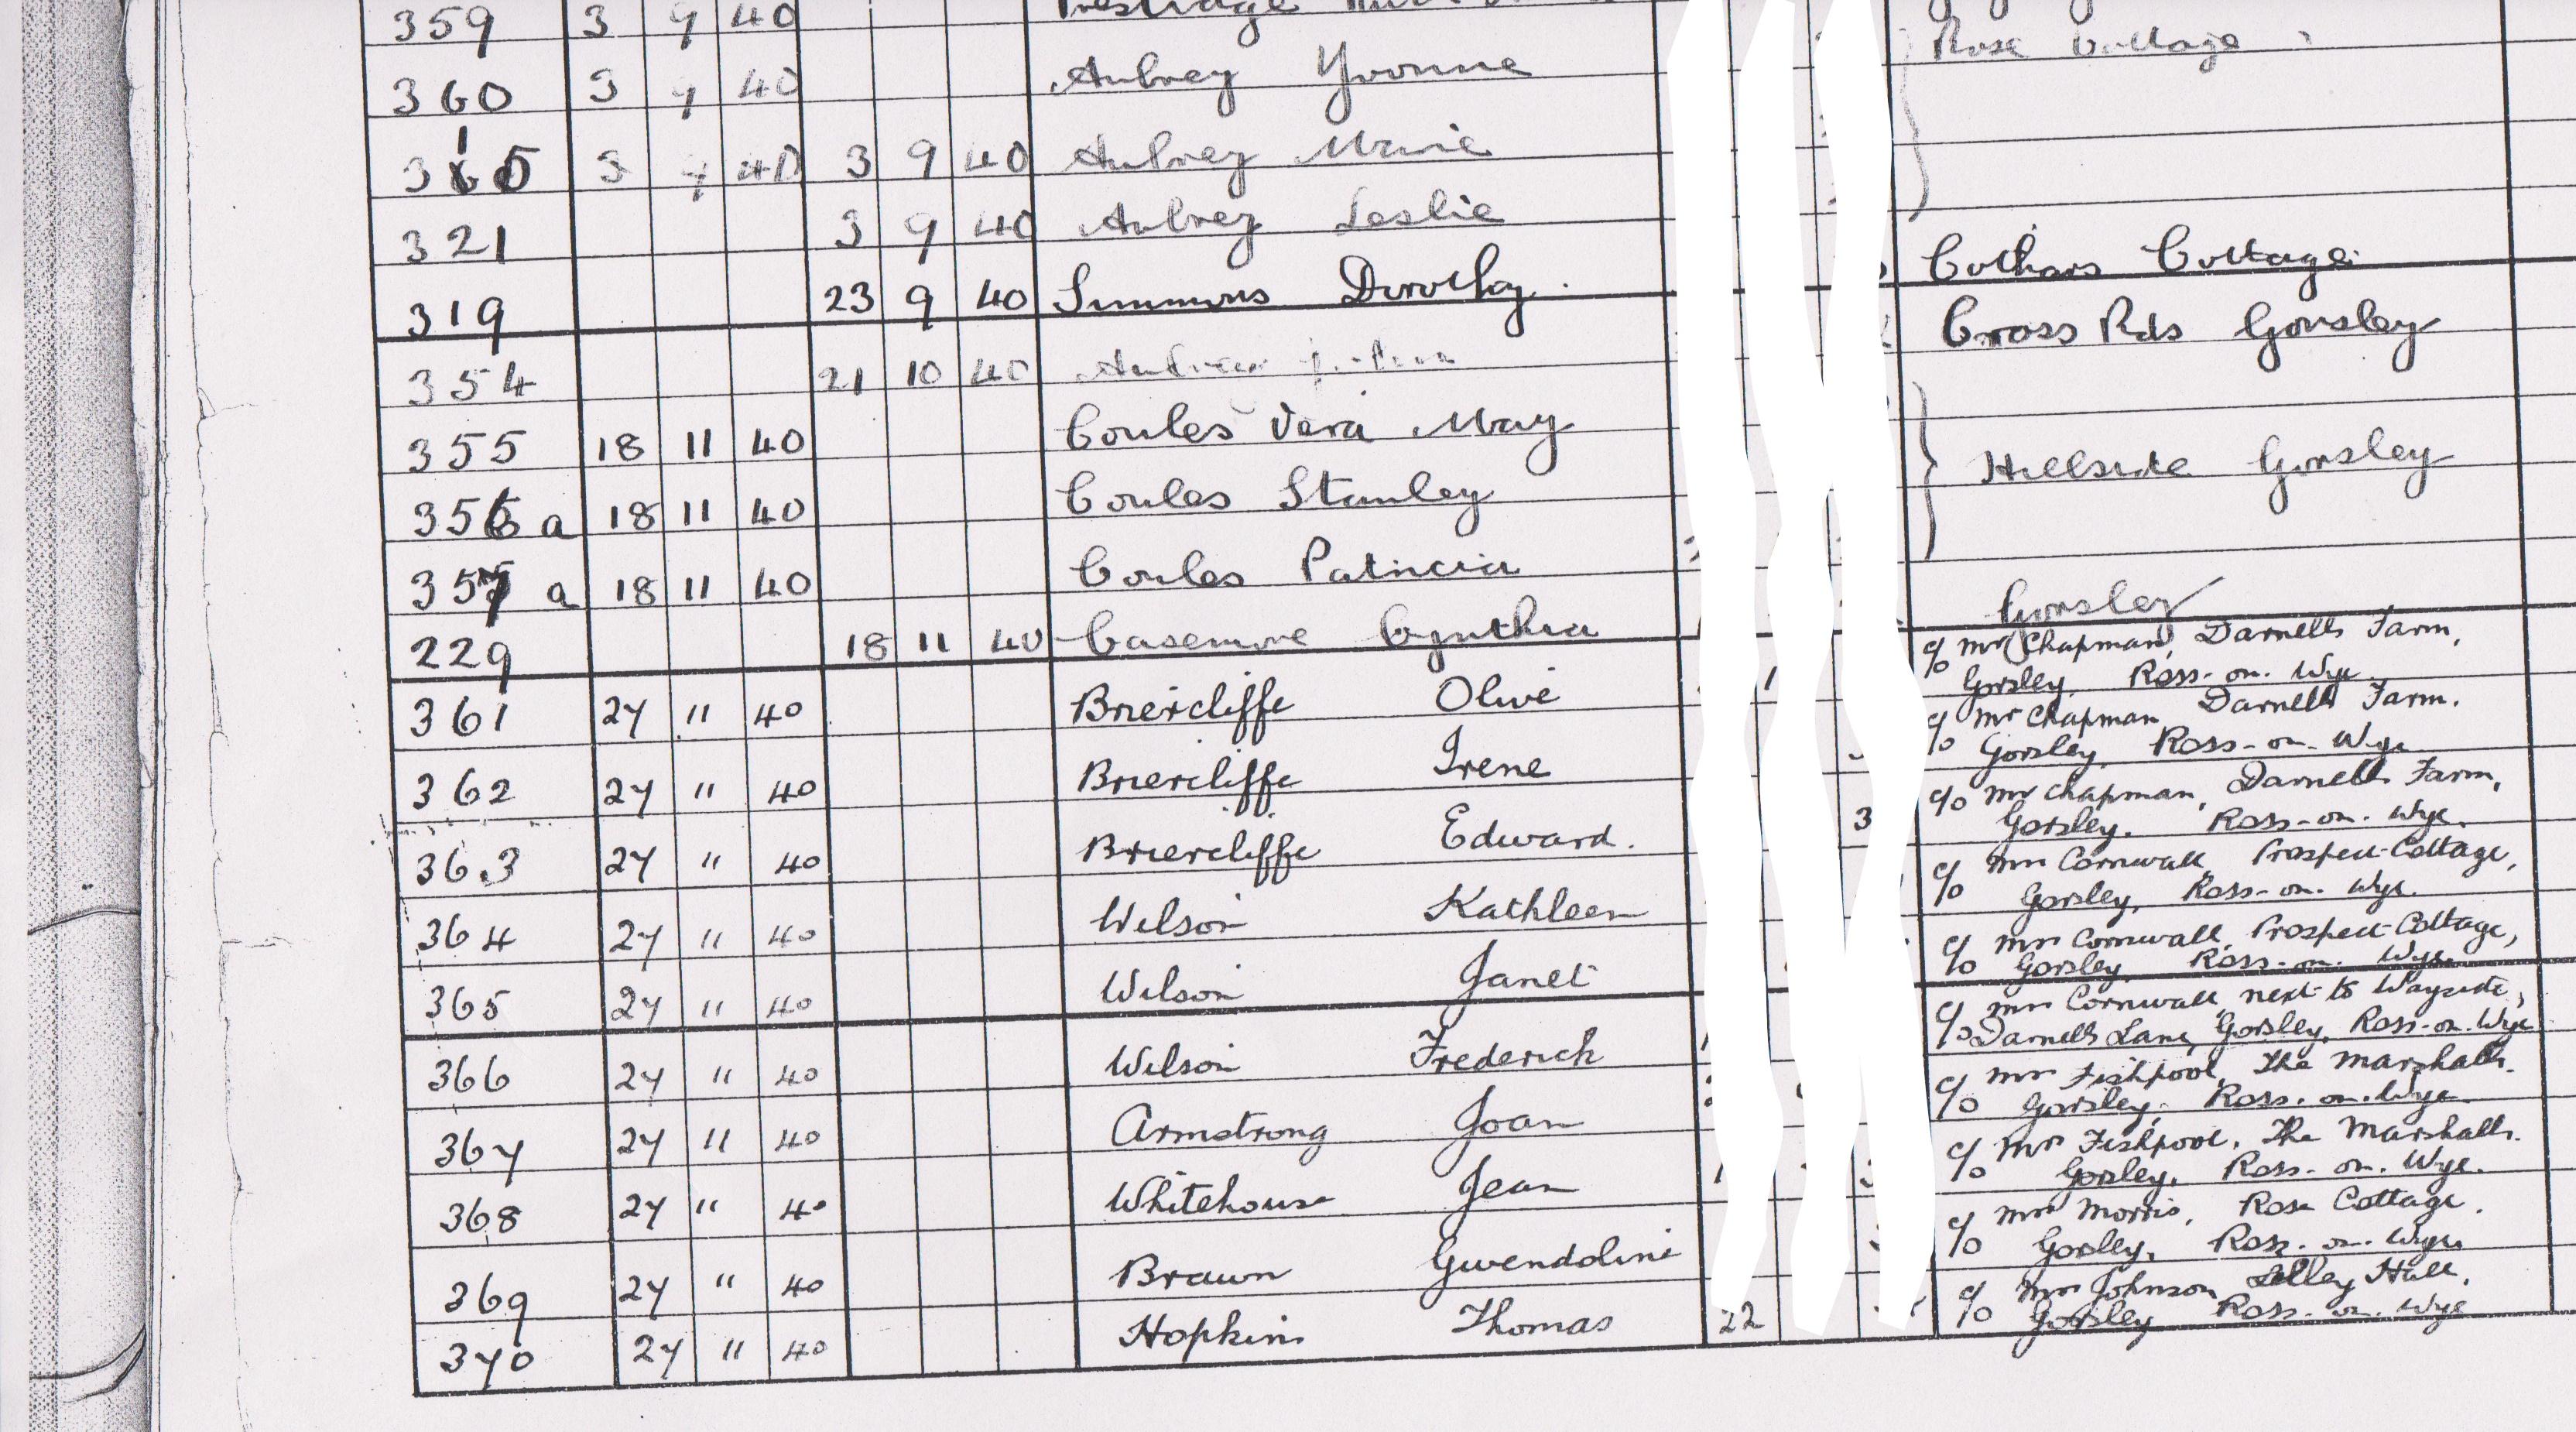 359 3 9 40 Prestridge
Rose Cottage
360 3 9 40 Aubrey Yvonne
3615 3 9 40 3 9 40 Aubrey Marie
321 3 9 40 Aubrey Leslie
319 23 9 40 Simmons Dorothy. Cothars Cottage
354 21 10 40 Cross Rds Gorsley
355 18 11 40 Coules Vera May
356 a 18 11 40 Coules Stanley Hillside Gorsley
357 a 18 11 40 Coules Patricia
229 18 11 40 Casemore Cynthia Gorsley
361 27 11 40 Briercliffe Olive c/o Mr Chapman, Darnells Farm,
Gorsley, Ross-on-Wye
362 27 " 40 Briercliffe Irene c/o Mr Chapman Darnells Farm.
Gorsley, Ross-on-Wye
363 27 " 40 Briercliffe Edward. 3 c/o Mr Chapman, Darnells Farm,
Gorsley. Ross-on-Wye.
364 27 " 40 Wilson Kathleen c/o Mrs Cornwall, Prospect Cottage,
Gorsley, Ross-on-Wye.
365 27 " 40 Wilson Janet c/o Mrs Cornwall, Prospect Cottage,
Gorsley, Ross-on-Wye.
366 27 " 40 Wilson Frederick c/o Mrs Cornwall, next to Wayside,
Darnells Lane, Gorsley, Ross-on-Wye
367 27 11 40 Armstrong Joan c/o Mrs Fishpool, The Marshalls.
Gorsley, Ross-on-Wye.
368 27 " 40 Whitehouse Jean c/o Mrs Fishpool, The Marshalls.
Gorsley, Ross-on-Wye.
369 27 " 40 Brawn Gwendoline c/o Mrs Morris, Rose Cottage.
Gorsley, Ross-on-Wye
370 27 " 40 Hopkins Thomas 22 c/o Mrs Johnson, Hall,
Gorsley Ross-on-Wye